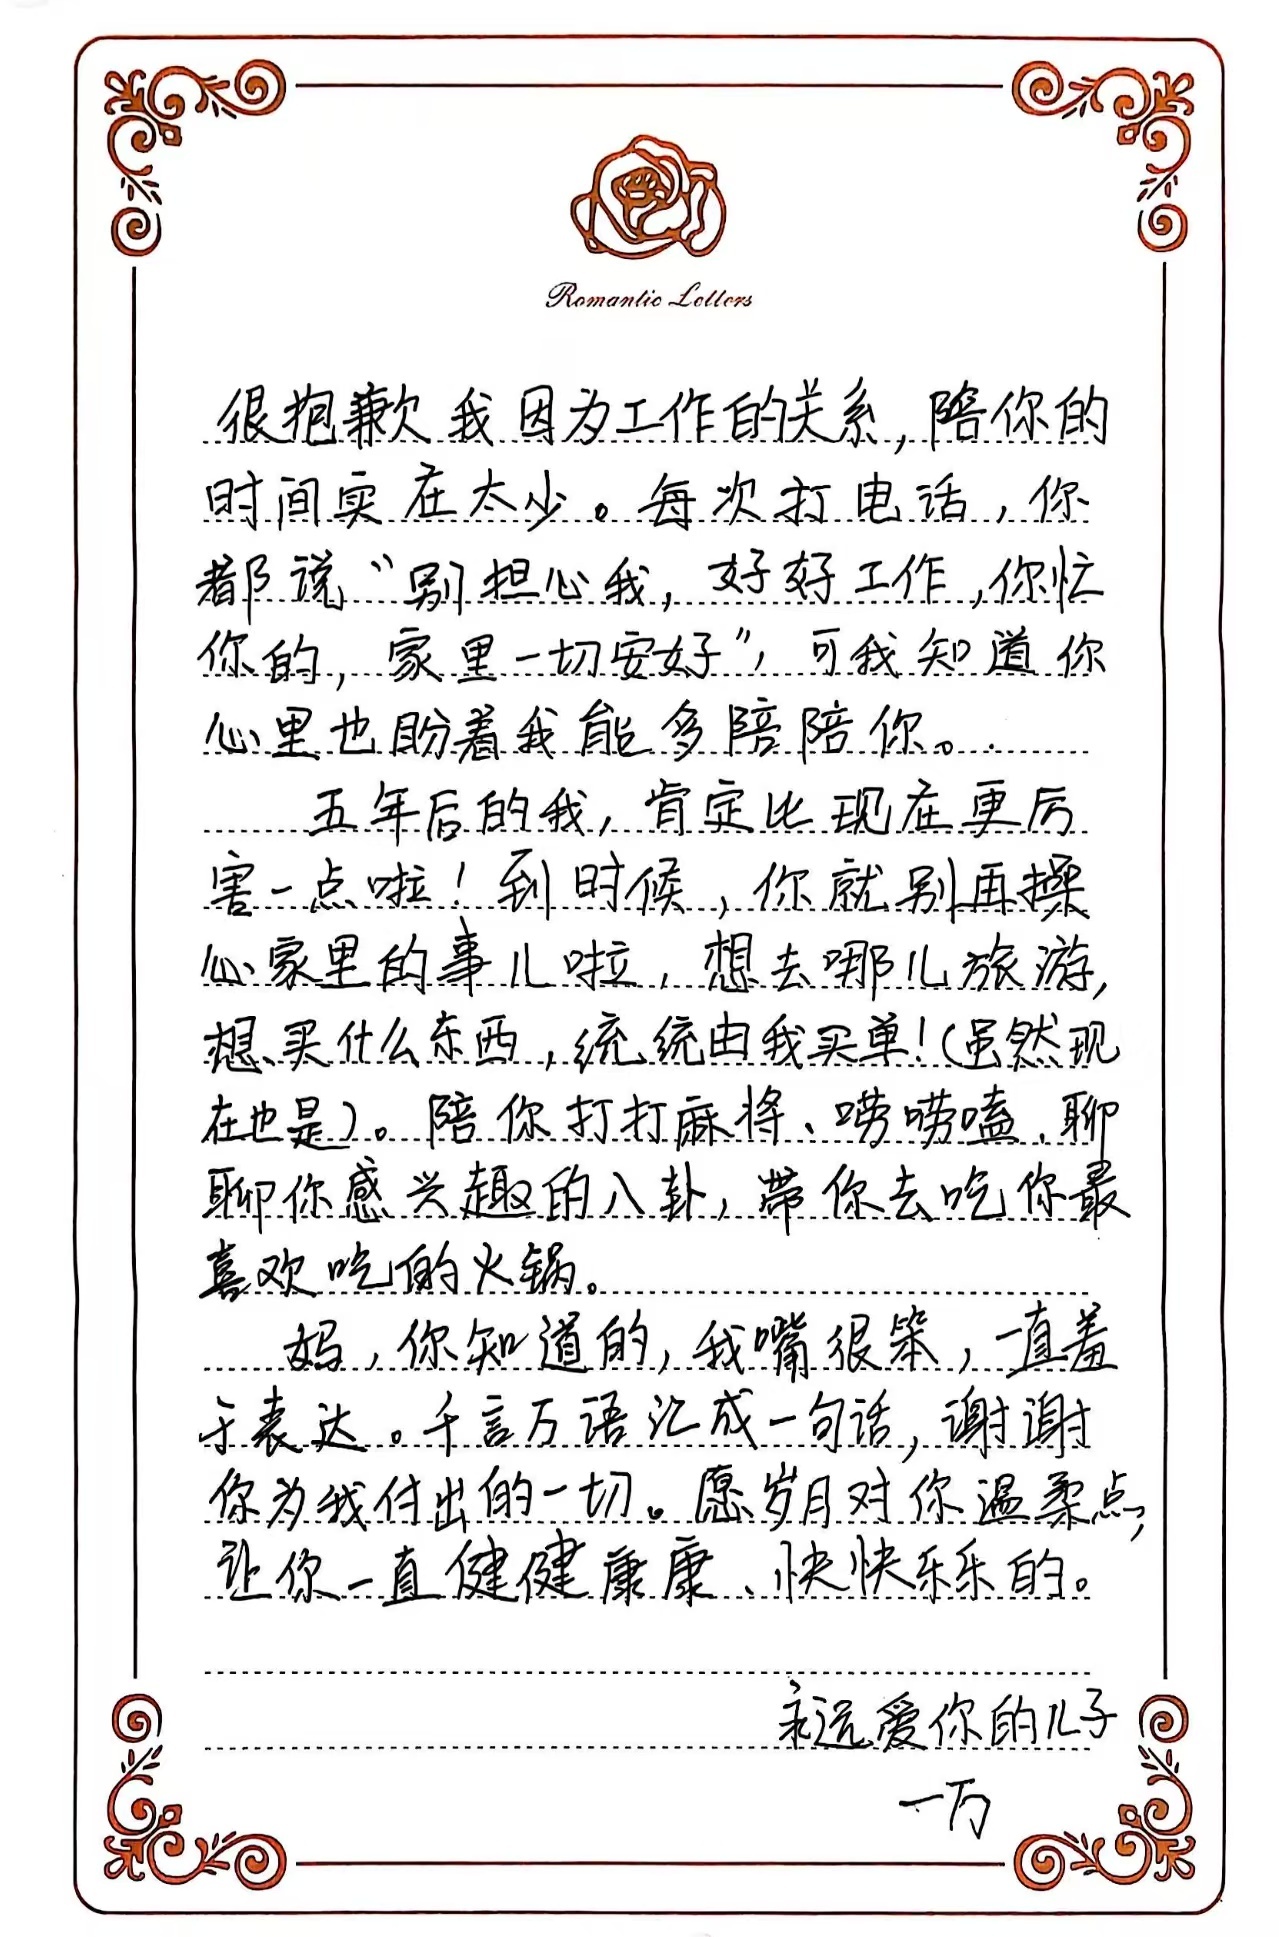 Romantic Letters
很抱歉我因为工作的关系，陪你的
时间实在太少。每次打电话，你
都说“别担心我，好好工作，你忙
你的，家里一切安好”，可我知道你
心里也盼着我能多陪陪你。
五年后的我，肯定比现在更厉
害一点啦！到时候，你就别再操
心家里的事儿啦，想去哪儿旅游，
想买什么东西，统统由我买单！（虽然现
在也是）。陪你打打麻将、唠唠嗑、聊
聊你感兴趣的八卦，带你去吃你最
喜欢吃的火锅。
妈，你知道的，我嘴很笨，一直羞
于表达。千言万语汇成一句话，谢谢
你为我付出的一切。愿岁月对你温柔点，
让你一直健健康康、快快乐乐的。
永远爱你的儿子
一万